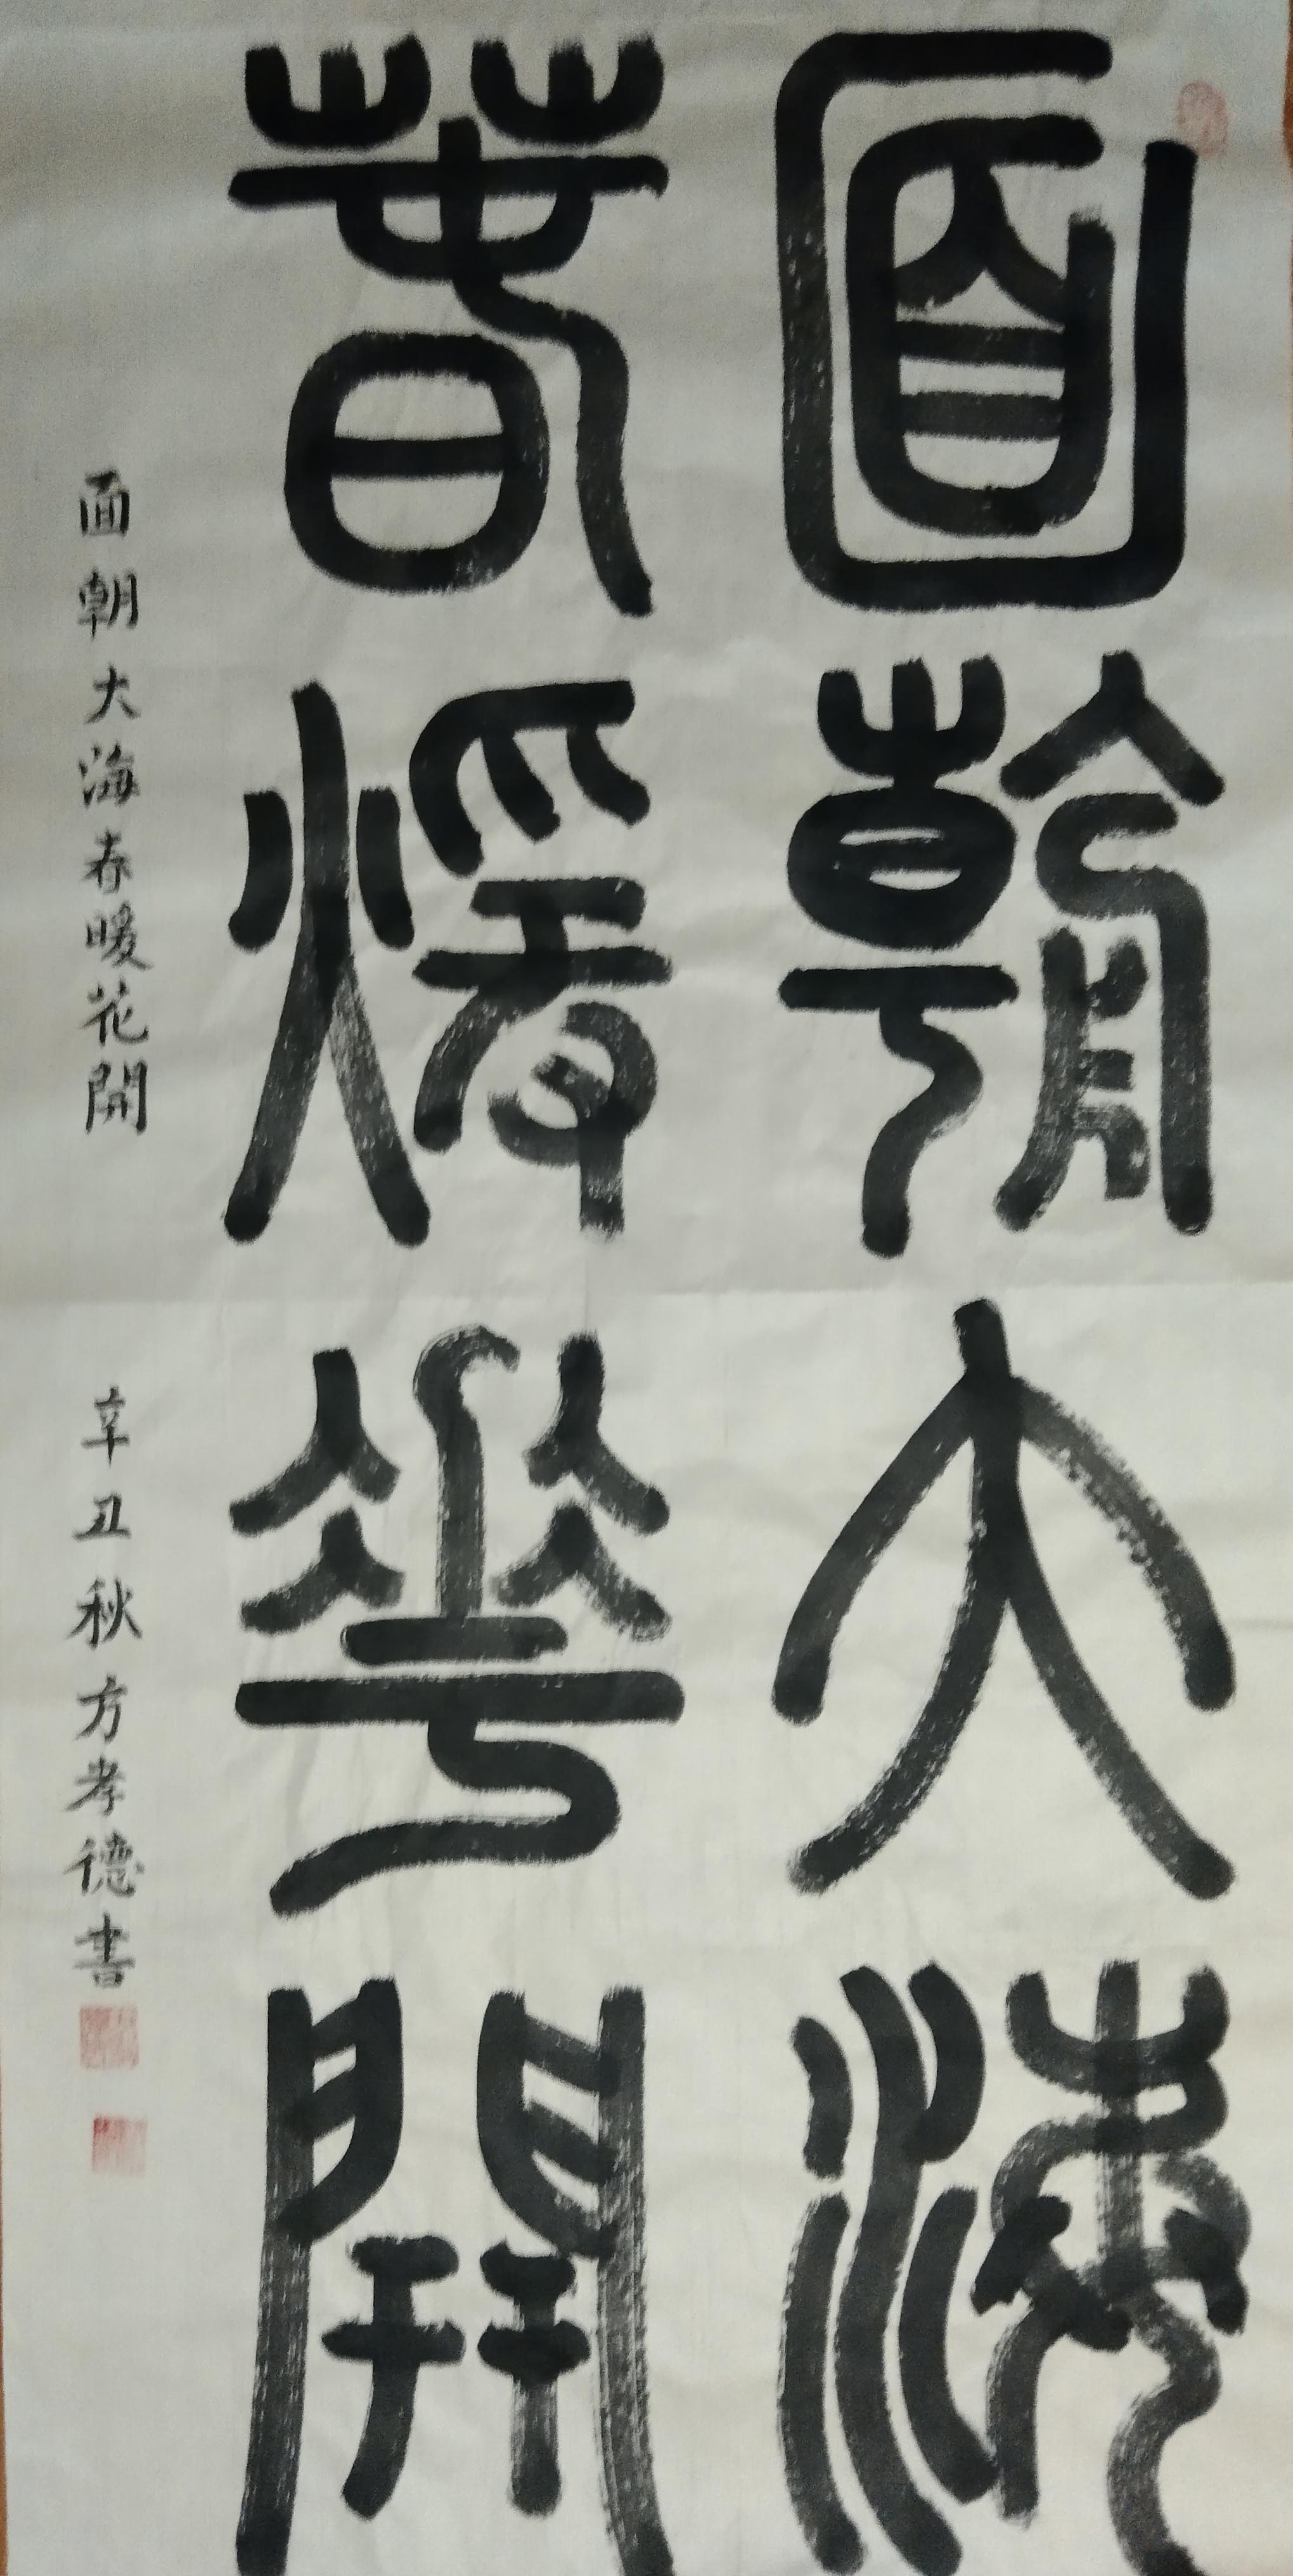 面朝大海
春煖花開
面朝大海春暖花開 辛丑秋方孝德書